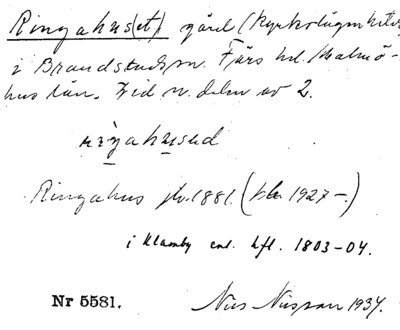 Ringahus(et) gård (Kyrkolägenhet)
i Brandstads sn. Färs hd. Malmö-
hus län. Vid n. delen av 2.
riŋahused
Ringahus jb. 1881. (1927–.)
i Klamby enl. hfl. 1803–04.
Nr 5581.
Nils Nilsson 1934.